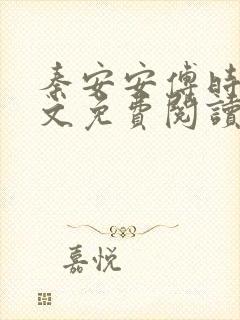 秦安安傅時
文免費閱讀
嘉悅